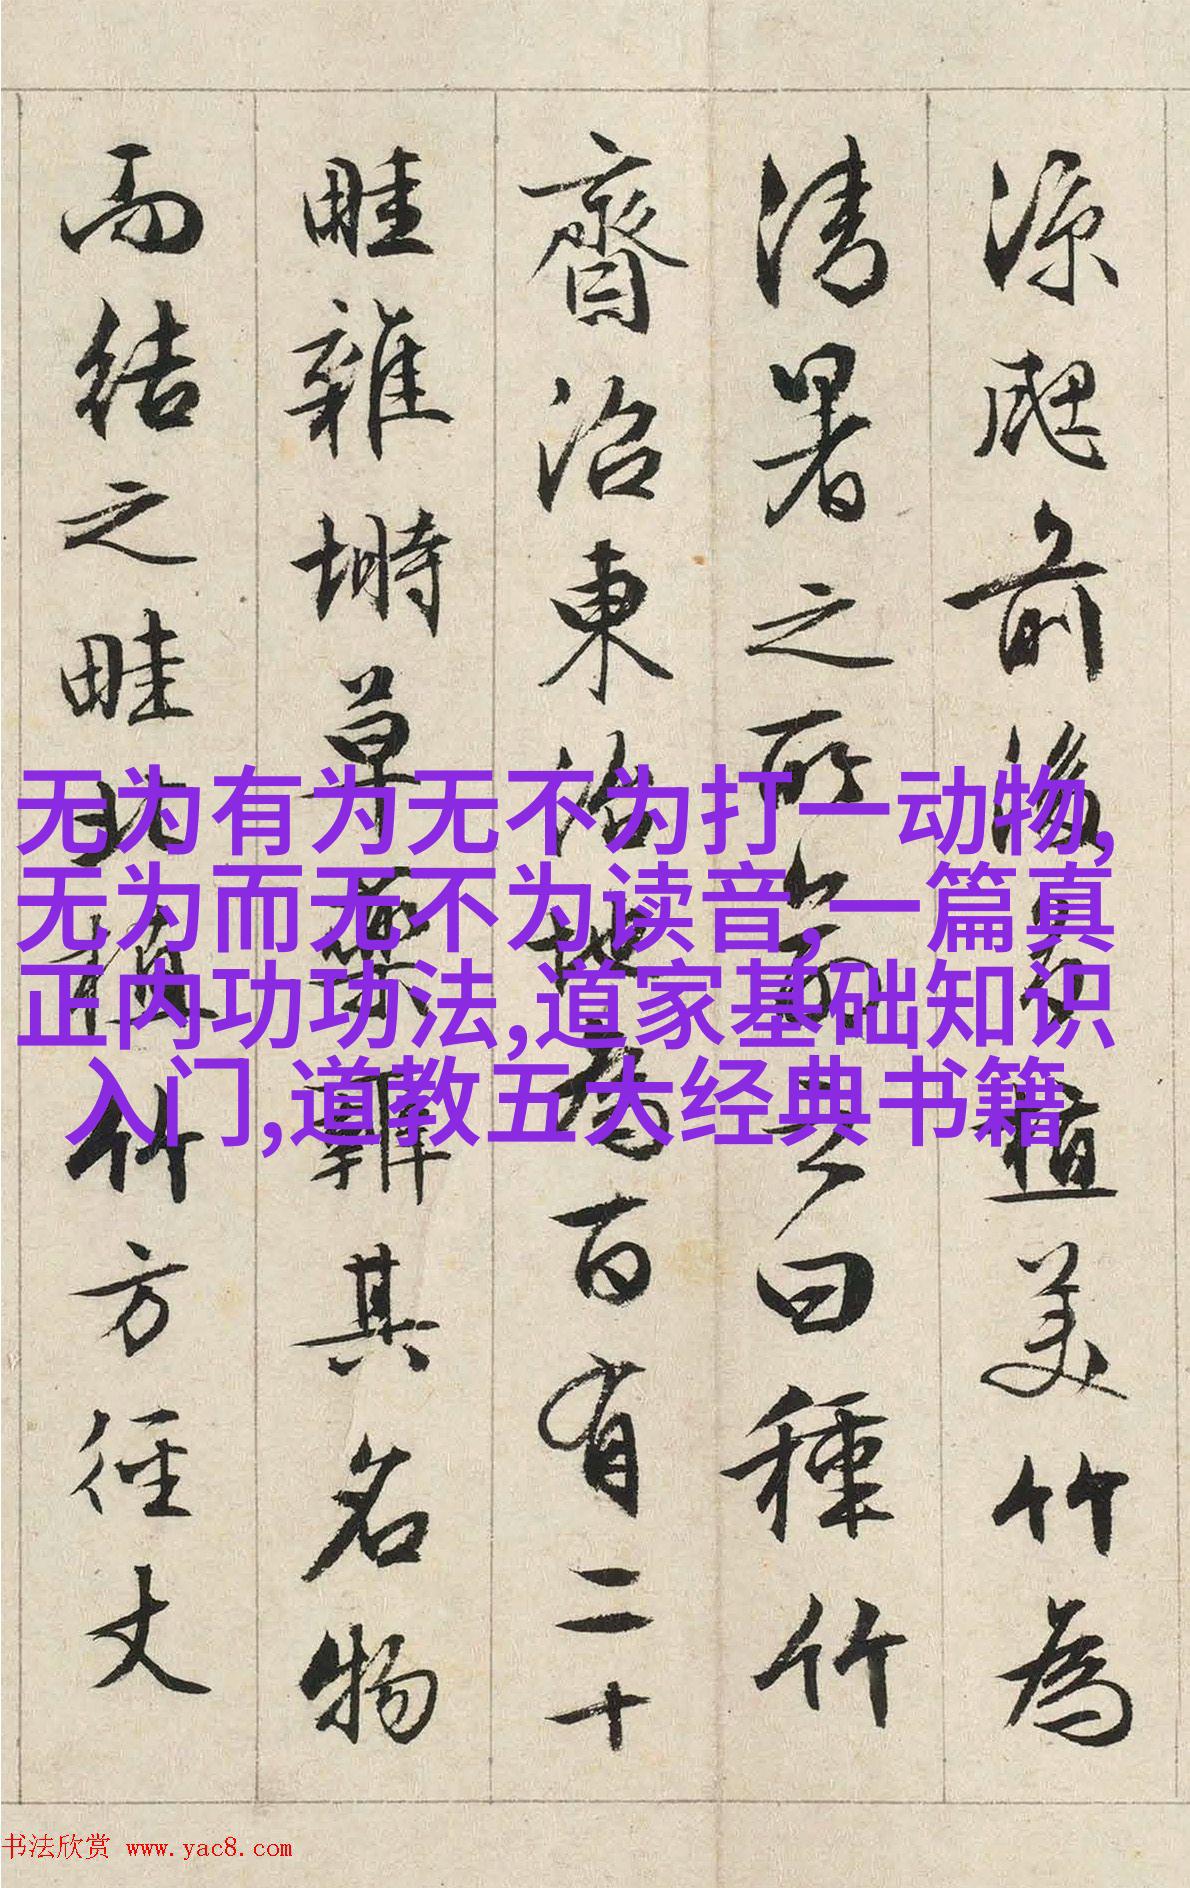 涼颸前後多植美竹為
清暑之所命之曰種竹
齋沼東治地為百有二十
畦雜蒔草藥辨其名物
而結之畦北植竹方徑丈
无为有为无不为打一动物,
无为而无不为读音,一篇真
正内功功法,道家基础知识
入门,道教五大经典书籍
书法欣赏 www.yac8.com